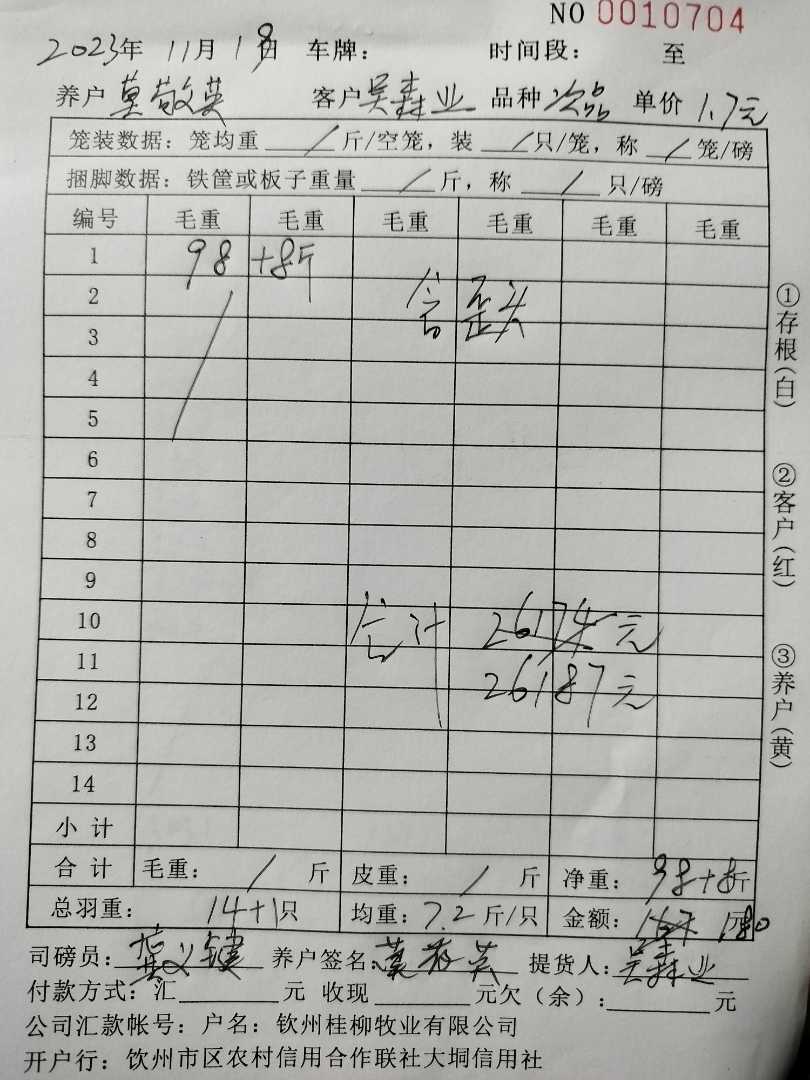 NO 0010704
2023年 11月 18日 车牌： 时间段： 至
养户 莫敬英 客户 吴森业 品种 次品 单价 1.7元
笼装数据：笼均重 / 斤/空笼，装 / 只/笼，称 / 笼/磅
捆脚数据：铁筐或板子重量 / 斤，称 / 只/磅
编号 毛重 毛重 毛重 毛重 毛重 毛重
1 98 +8斤
2 含歪头
3
4
5
6
7
8
9
10 合计 26174元
11 26187元
12
13
14
小计
合计 毛重： / 斤 皮重： / 斤 净重： 98+8斤
总羽重： 14+1只 均重：7.2斤/只 金额： 167 元 180
司磅员： 义键 养户签名： 莫敬英 提货人： 吴森业
付款方式：汇 元 收现 元欠（余）： 元
公司汇款帐号：户名：钦州桂柳牧业有限公司
开户行：饮州市区农村信用合作联社大垌信用社
①存根（白）
②客户（红）
③养户（黄）